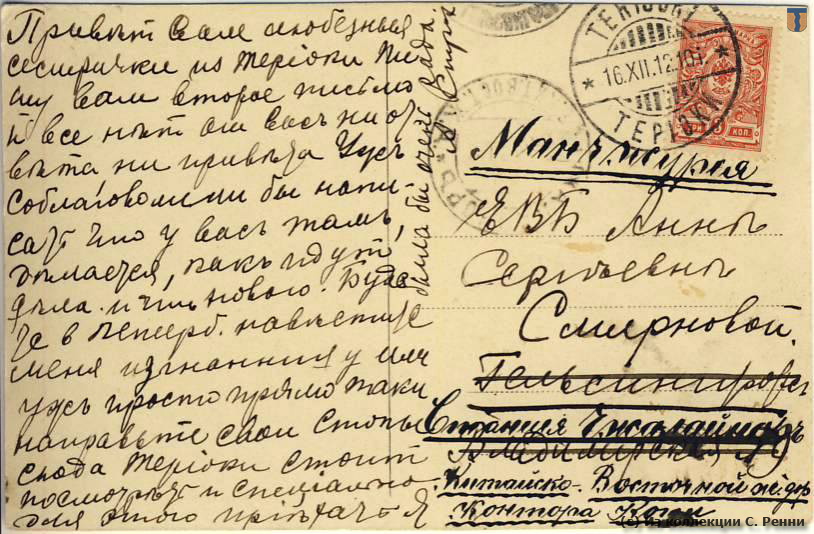 Привѣт Вам любезныя
сестрички из Теріоки Пи-
шу вам второе письмо
и все нѣт от васъ ни от-
вѣта ни привѣта Ужъ
соблаговолили бы напи-
сать что у васъ тамъ
дѣлается, какъ идут
дѣла и что новаго. Буде-
те в Петерб. навѣстите
меня изгнанния у или
ужъ просто прямо таки
направьте свои стопы
сюда Теріоки стоит
посмотрѣть и спеціально
для этого пріѣхать Я
была бы очень рада.
TERIJOKI
16.XII.12.10i.
ТЕРІОКИ
КОП.
Манчжурия
ЕВБ Анны
Сергѣевны
Смирновой.
Гельсингфорс
Станция Чжалайноръ
Владимирская
Китайско-Восточной ж. дор
Контора Копи
(c) Из коллекции С. Ренни